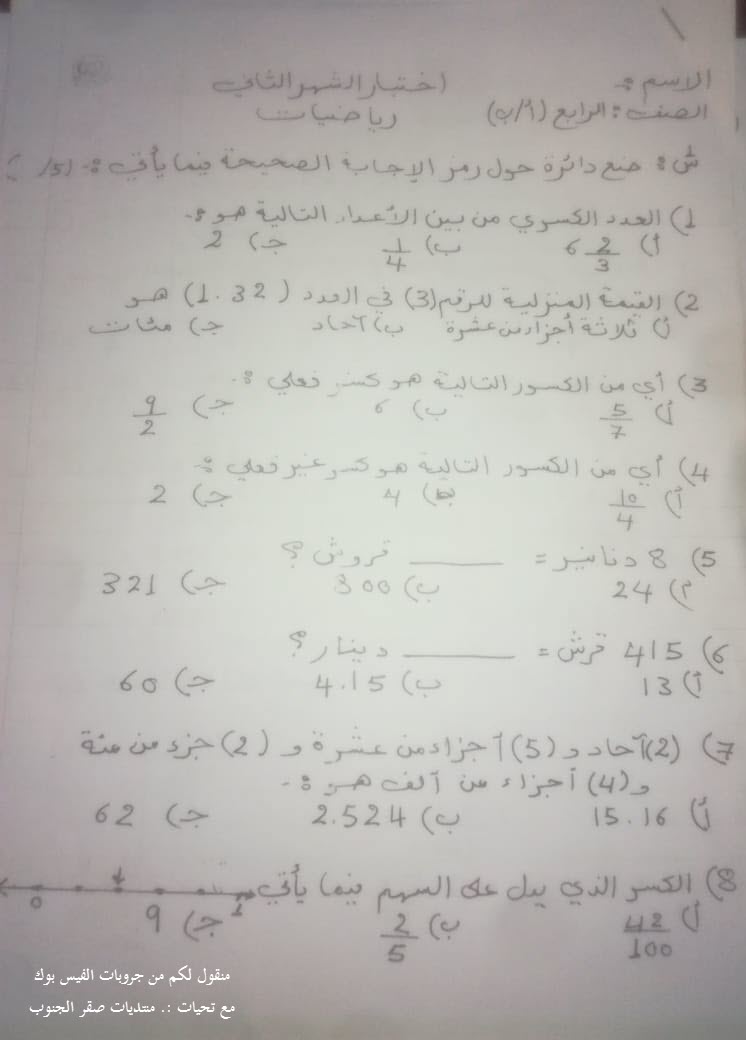 الاسم :- اختبار الشهر الثاني
الصف : الرابع (أ/ب) رياضيات
س1: ضع دائرة حول رمز الإجابة الصحيحة فيما يأتي :- (15/ )
1) العدد الكسوري من بين الأعداد التالية هو :-
أ) 6 2/3 ب) 1/4 جـ) 2
2) القيمة المنزلية للرقم (3) في العدد (1.32) هو
أ) ثلاثة أجزاء من عشرة ب) آحاد جـ) مئات
3) أي من الكسور التالية هو كسر فعلي :-
أ) 5/7 ب) 6 جـ) 9/2
4) أي من الكسور التالية هو كسر غير فعلي :-
أ) 10/4 ب) 4 جـ) 2
5) 8 دنانير = ____ قروش ؟
أ) 24 ب) 300 جـ) 321
6) 415 قرش = ____ دينار ؟
أ) 13 ب) 4.15 جـ) 60
7) (2) آحاد و (5) أجزاء من عشرة و (2) جزء من مئة
و (4) أجزاء من ألف هو :-
أ) 15.16 ب) 2.524 جـ) 62
8) الكسر الذي يدل على السهم فيما يأتي 0 1
أ) 42/100 ب) 2/5 جـ) 9
منقول لكم من جروبات الفيس بوك
مع تحيات :. منتديات صقر الجنوب